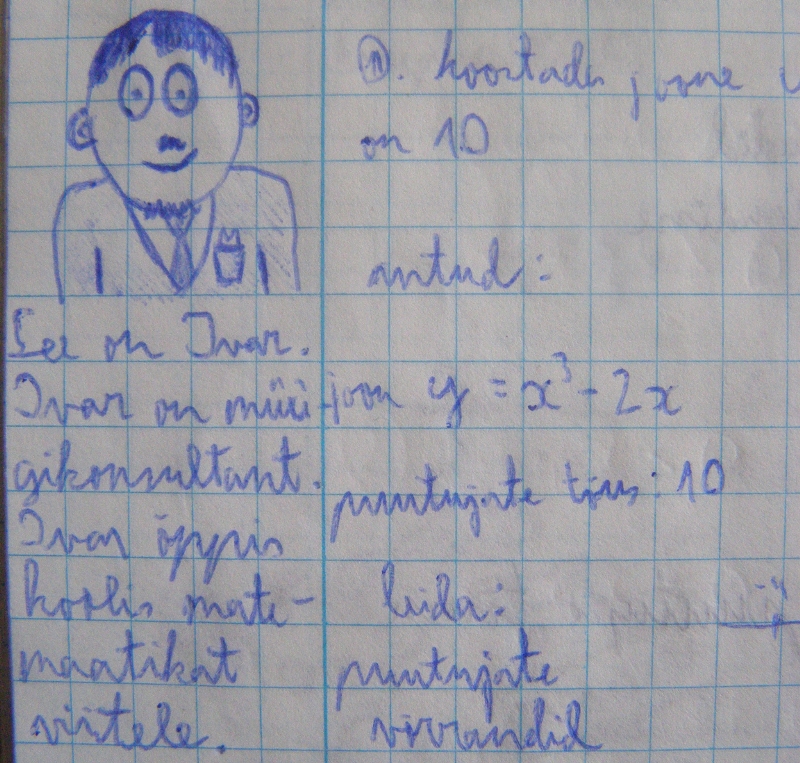 See on Ivar.
Ivar on müü-
gikonsultant.
Ivar õppis
koolis mate-
maatikat
viitele.
①. koostada joone
on 10
antud:
joon y = x³ - 2x
puutujate tõus: 10
leida:
puutujate
võrrandid